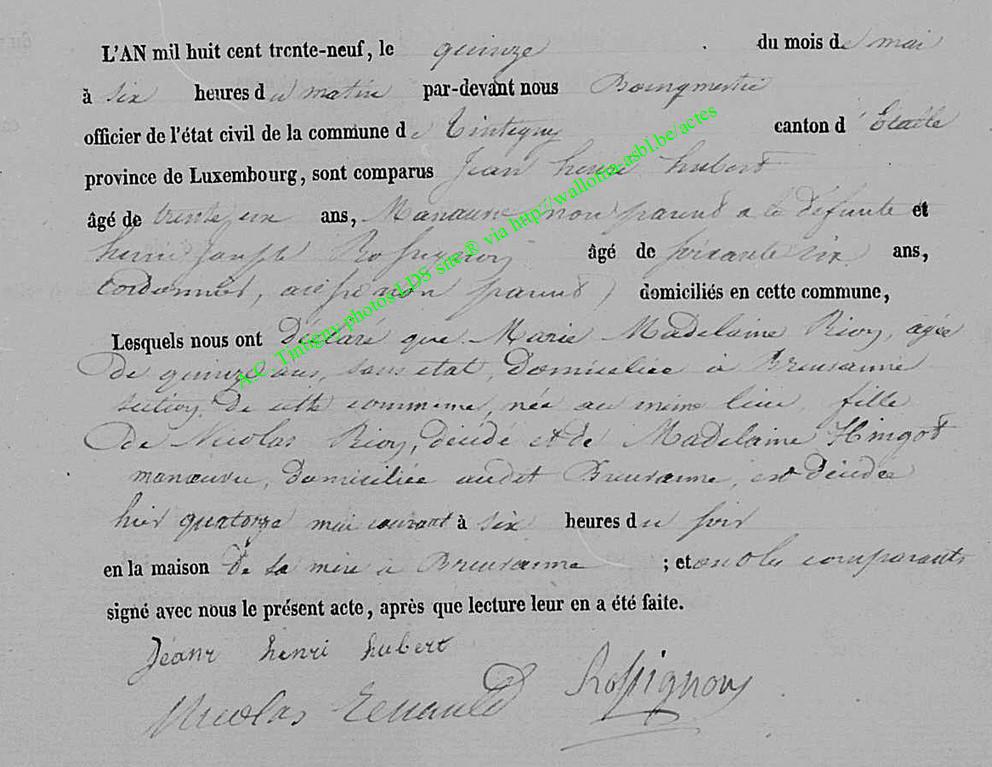 L'AN mil huit cent trente-neuf, le quinze du mois de mai
à six heures du matin par-devant nous Bourgmestre
officier de l'état civil de la commune de Tintigny canton d'Etalle
province de Luxembourg, sont comparus Jean henri hubert
âgé de trente ans, Manœuvre non parent a la défunte et
henri Joseph Rossignon âgé de soixante six ans,
Cordonnier, aussi non parent, domiciliés en cette commune,
Lesquels nous ont déclaré que Marie Madelaine Rion, agée
De quinze ans, sans etat, domiciliée à Breuvanne
section de cette commune, née au même lieu, fille
De Nicolas Rion, décédé et de Madelaine Hingot
manœuvre, domiciliée audit Breuvanne, est décédée
hier quatorze mai courant à six heures du soir
en la maison de sa mère à Breuvanne ; et ont les comparants
signé avec nous le présent acte, après que lecture leur en a été faite.
Jeanr henri hubert
Nicolas Renauld Rossignon
A.C. Tintigny photos LDS site ® via http://wallonia-asbl.be/actes